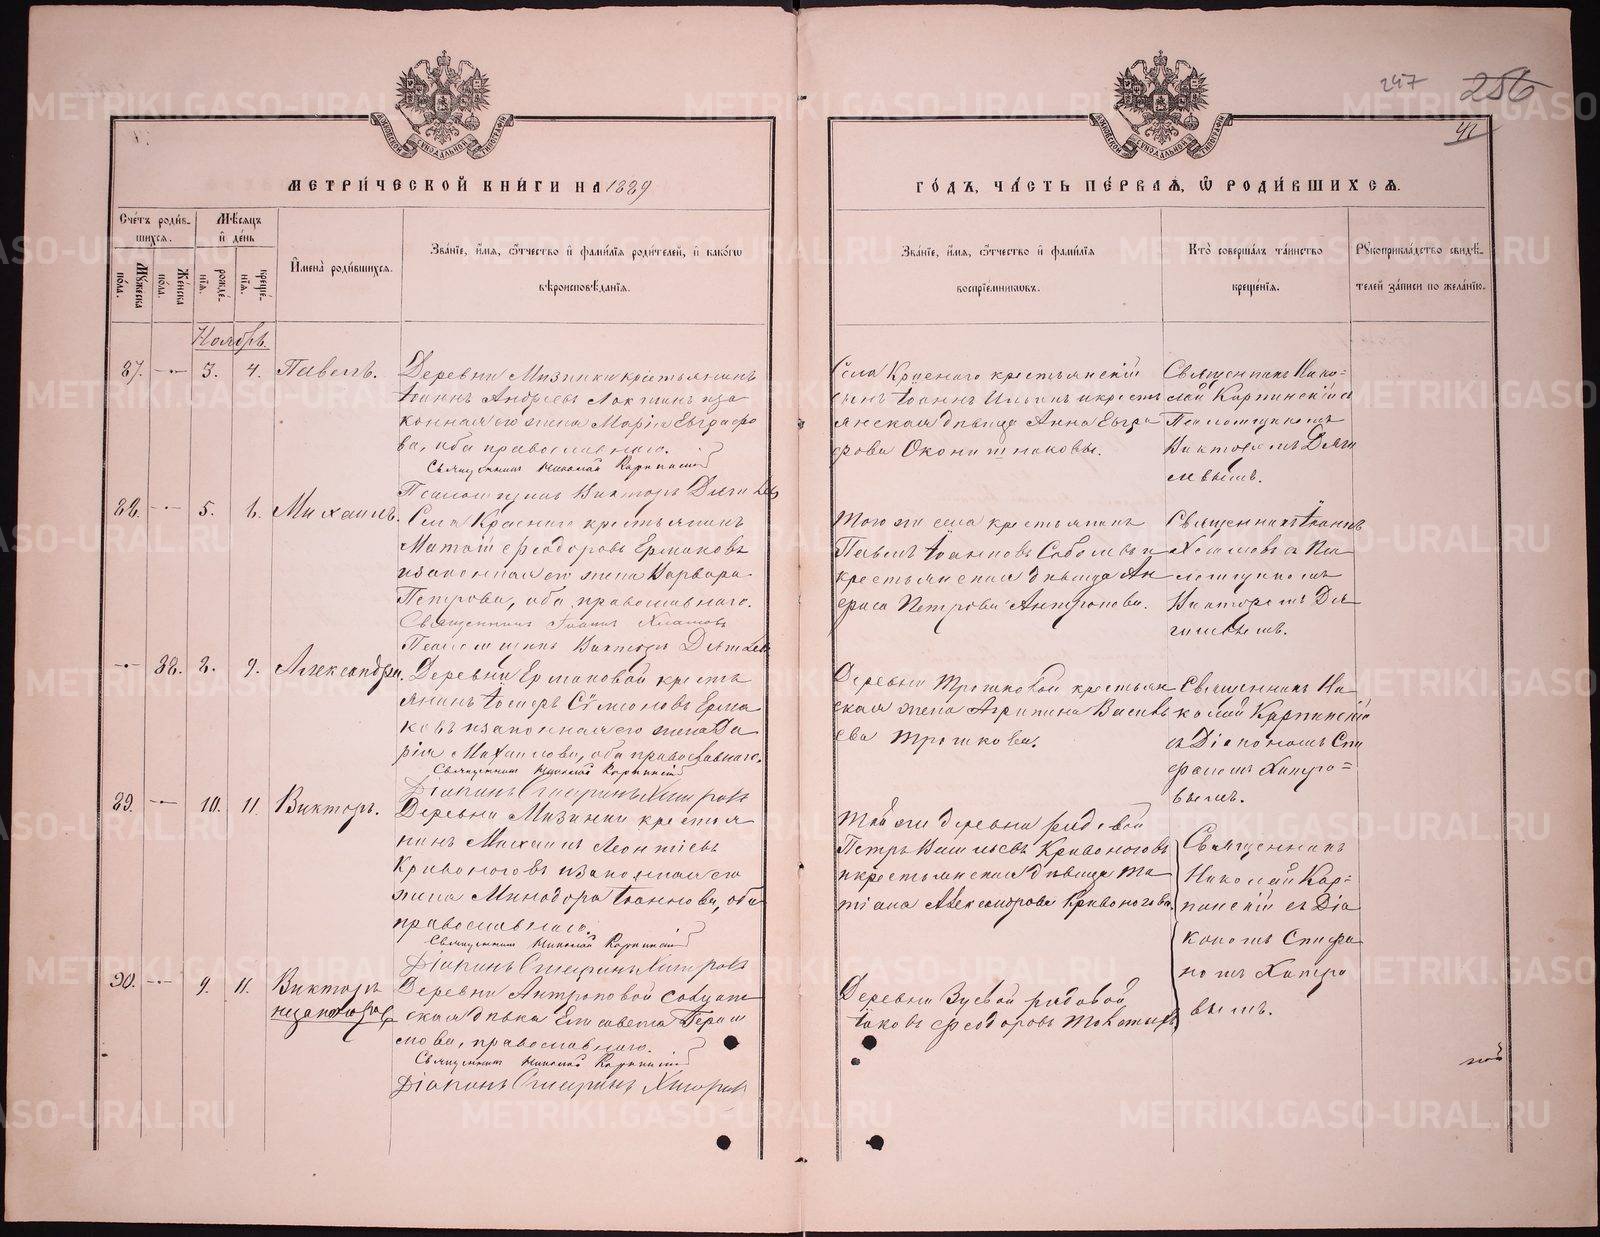 247 256
41
МЕТРИ́ЧЕСКОЙ КНИ́ГИ НА 1889
ГО́ДЪ, ЧА́СТЬ ПЕ́РВАЯ, Ѡ РОДИ́ВШИХСЯ.
Сче́тъ роди́в-
шихся.
Му́жеска по́ла.
Же́нска по́ла.
Мѣ́сяцъ
и҆ де́нь
рожде́-
нїя.
креще́-
нїя.
И҆мена̀ роди́вшихся.
Зва́нїе, и҆́мя, ѻ҆́тчество и҆ фами́лїя роди́телей, и҆ како́гѡ
вѣроисповѣ́данїя.
Зва́нїе, и҆́мя, ѻ҆́тчество и҆ фами́лїя
воспрїе́мниковъ.
Кто̀ соверша́лъ та́инство
креще́нїя.
Рꙋкоприкла́дство свидѣ́-
телей за́писи по жела́нїю.
Ноябрь.
87. —·— 3. 4. Павелъ.
Деревни Мизинки крестьянинъ
Іоаннъ Андреевъ Локтинъ и за
конная его жена Марія Евграфо
ва, оба православнаго.
Священникъ Николай Карпинскій
Псаломщикъ Викторъ Дягилевъ
Села Краснаго крестьянскій
сынъ Іоаннъ Ильинъ и кресть
янская дѣвица Анна Евгра
фова Оконишниковы.
Священникъ Нико-
лай Карпинскій съ
Псаломщикомъ
Викторомъ Дяги
левымъ.
88. —·— 5. 6. Михаилъ.
Села Краснаго крестьянинъ
Ѳеодоровъ Ермаковъ
и законная его жена Варвара
Петрова, оба православнаго.
Священникъ Іоаннъ Хламовъ
Псаломщикъ Викторъ Дягилевъ
Того же села крестьянинъ
Павелъ Іоанновъ Соболевъ и
крестьянская дѣвица Ан
фиса Петрова Антропова.
Священникъ Іоаннъ
Хламовъ съ Пса
ломщикомъ
Викторомъ Дя
гилевымъ.
—·— 88. 8. 9. Александра.
Деревни Ермаковой кресть
янинъ Іосифъ Сѷмеоновъ Ерма
ковъ и законная его жена Да
рія Михаилова, оба православнаго.
Священникъ Николай Карпинскій
Діаконъ Спиридонъ Хитровъ
Деревни Трошковой крестьян
ская жена Агрипина Василь
ева Трошкова.
Священникъ Ни
колай Карпинскій
съ Діакономъ Спи
Хитро-
вымъ.
89. —·— 10. 11. Викторъ.
Деревни Мизинки крестья
нинъ Михаилъ Леонтіевъ
Кривоноговъ и законная его
жена Минодора Іоаннова, оба
православнаго.
Священникъ Николай Карпинскій
Діаконъ Хитровъ
Той же деревни рядовой
Петръ Васильевъ Кривоноговъ
и крестьянская дѣвица Та
тіана Александрова Кривоногова.
Священникъ
Николай Кар-
пинскій съ Діа
кономъ
Хитро
вымъ.
90. —·— 9. 11. Викторъ
незаконорож
Деревни Антроповой солдат
ская дѣвка Елисавета Гераси
мова, православнаго.
Священникъ Николай Карпинскій
Діаконъ Хитровъ
Деревни Зуевой рядовой
Іаковъ Ѳеодоровъ
METRIKI.GASO-URAL.RU